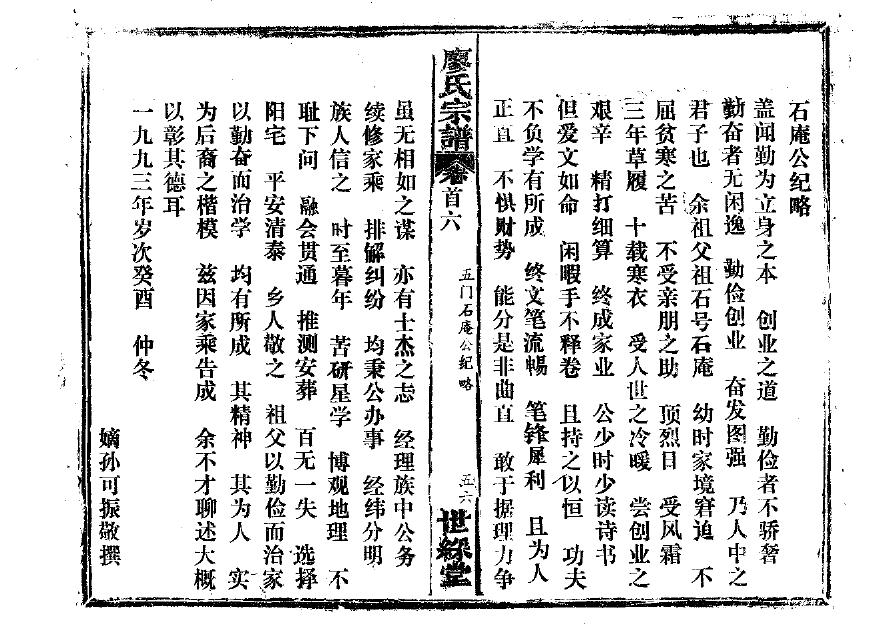 石庵公纪略
盖闻勤为立身之本 创业之道 勤俭者不骄奢
勤奋者无闲逸 勤俭创业 奋发图强 乃人中之
君子也 余祖父祖石号石庵 幼时家境窘迫 不
屈贫寒之苦 不受亲朋之助 顶烈日 受风霜
三年草履 十载寒衣 受人世之冷暖 尝创业之
艰辛 精打细算 终成家业 公少时少读诗书
但爱文如命 闲暇手不释卷 且持之以恒 功夫
不负学有所成 终文笔流暢 笔锋犀利 且为人
正直 不惧财势 能分是非曲直 敢于据理力争
廖氏宗譜 卷首六 五门石庵公纪略 五六 世綵堂
虽无相如之谋 亦有士杰之志 经理族中公务
续修家乘 排解纠纷 均秉公办事 经纬分明
族人信之 时至暮年 苦研星学 博观地理 不
耻下问 融会贯通 推测安葬 百无一失 选择
阳宅 平安清泰 乡人敬之 祖父以勤俭而治家
以勤奋而治学 均有所成 其精神 其为人 实
为后裔之楷模 兹因家乘告成 余不才聊述大概
以彰其德耳
一九九三年岁次癸酉 仲冬
嫡孙可振敬撰